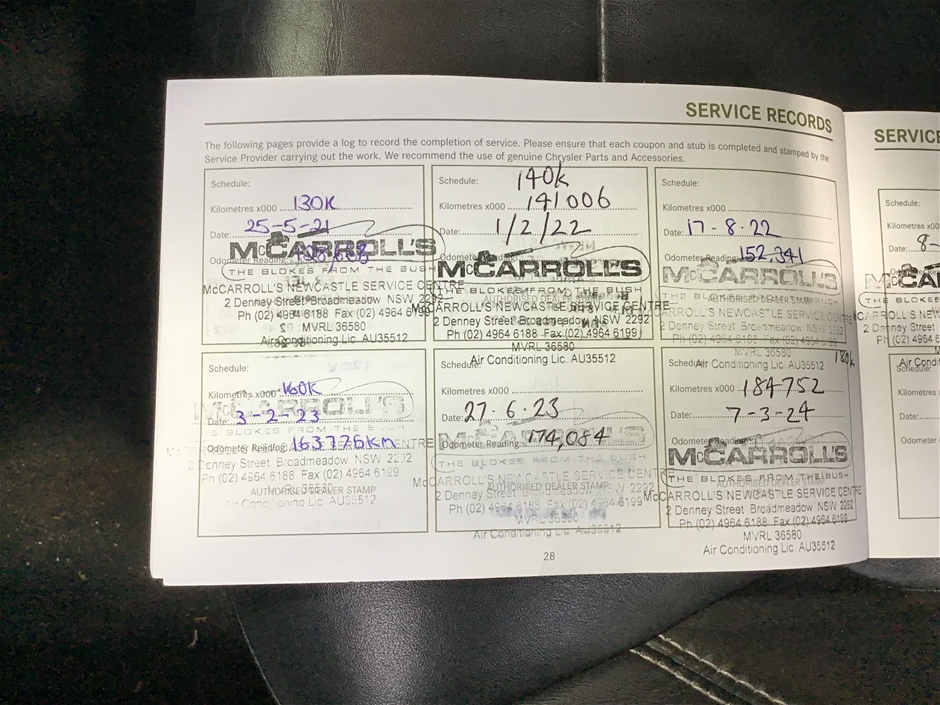 SERVICE RECORDS
The following pages provide a log to record the completion of service. Please ensure that each coupon and stub is completed and stamped by the
Service Provider carrying out the work. We recommend the use of genuine Chrysler Parts and Accessories.
Schedule:
Kilometres x000 130K
Date: 25-5-21
McCARROLL'S
Odometer Reading:
THE BLOKES FROM THE BUSH
McCARROLL'S NEWCASTLE SERVICE CENTRE
2 Denney Street Broadmeadow NSW 2292
Ph (02) 4964 6188 Fax (02) 4964 6199
MVRL 36580
Air Conditioning Lic. AU35512
Schedule: 140k
Kilometres x000 141006
Date: 1/2/22
Odometer Reading:
McCARROLL'S
THE BLOKES FROM THE BUSH
AUTHORISED DEALER STAMP
McCARROLL'S NEWCASTLE SERVICE CENTRE
2 Denney Street Broadmeadow NSW 2292
Ph (02) 4964 6188 Fax (02) 4964 6199
MVRL 36580
Air Conditioning Lic. AU35512
Schedule:
Kilometres x000
Date: 17-8-22
Odometer Reading: 152,341
McCARROLL'S
THE BLOKES FROM THE BUSH
AUTHORISED DEALER STAMP
McCARROLL'S NEWCASTLE SERVICE CENTRE
2 Denney Street Broadmeadow NSW 2292
Ph (02) 4964 6188 Fax (02) 4964 6199
MVRL 36580
Air Conditioning Lic. AU35512
Schedule:
Kilometres x000 160K
McCARROLL'S
Date: 3-2-23
BLOKES FROM THE BUSH
Odometer Reading: 163776km
McCARROLL'S NEWCASTLE SERVICE CENTRE
2 Denney Street Broadmeadow NSW 2292
Ph (02) 4964 6188 Fax (02) 4964 6199
MVRL 36580
AUTHORISED DEALER STAMP
Air Conditioning Lic. AU35512
Schedule:
Kilometres x000
Date: 27.6.23
Odometer Reading: 174,084
McCARROLL'S
THE BLOKES FROM THE BUSH
McCARROLL'S NEWCASTLE SERVICE CENTRE
AUTHORISED DEALER STAMP
2 Denney Street Broadmeadow NSW 2292
Ph (02) 4964 6188 Fax (02) 4964 6199
MVRL 36580
Air Conditioning Lic. AU35512
Schedule: 180k
Kilometres x000 184752
Date: 7-3-24
Odometer Reading:
McCARROLL'S
THE BLOKES FROM THE BUSH
AUTHORISED DEALER STAMP
McCARROLL'S NEWCASTLE SERVICE CENTRE
2 Denney Street Broadmeadow NSW 2292
Ph (02) 4964 6188 Fax (02) 4964 6199
MVRL 36580
Air Conditioning Lic. AU35512
28
SERVICE
Schedule:
Kilometres x000
Date: 8-
THE BLOKES
2 Denney
Air Condi
Schedule:
Kilometres x000
Date:
Odometer